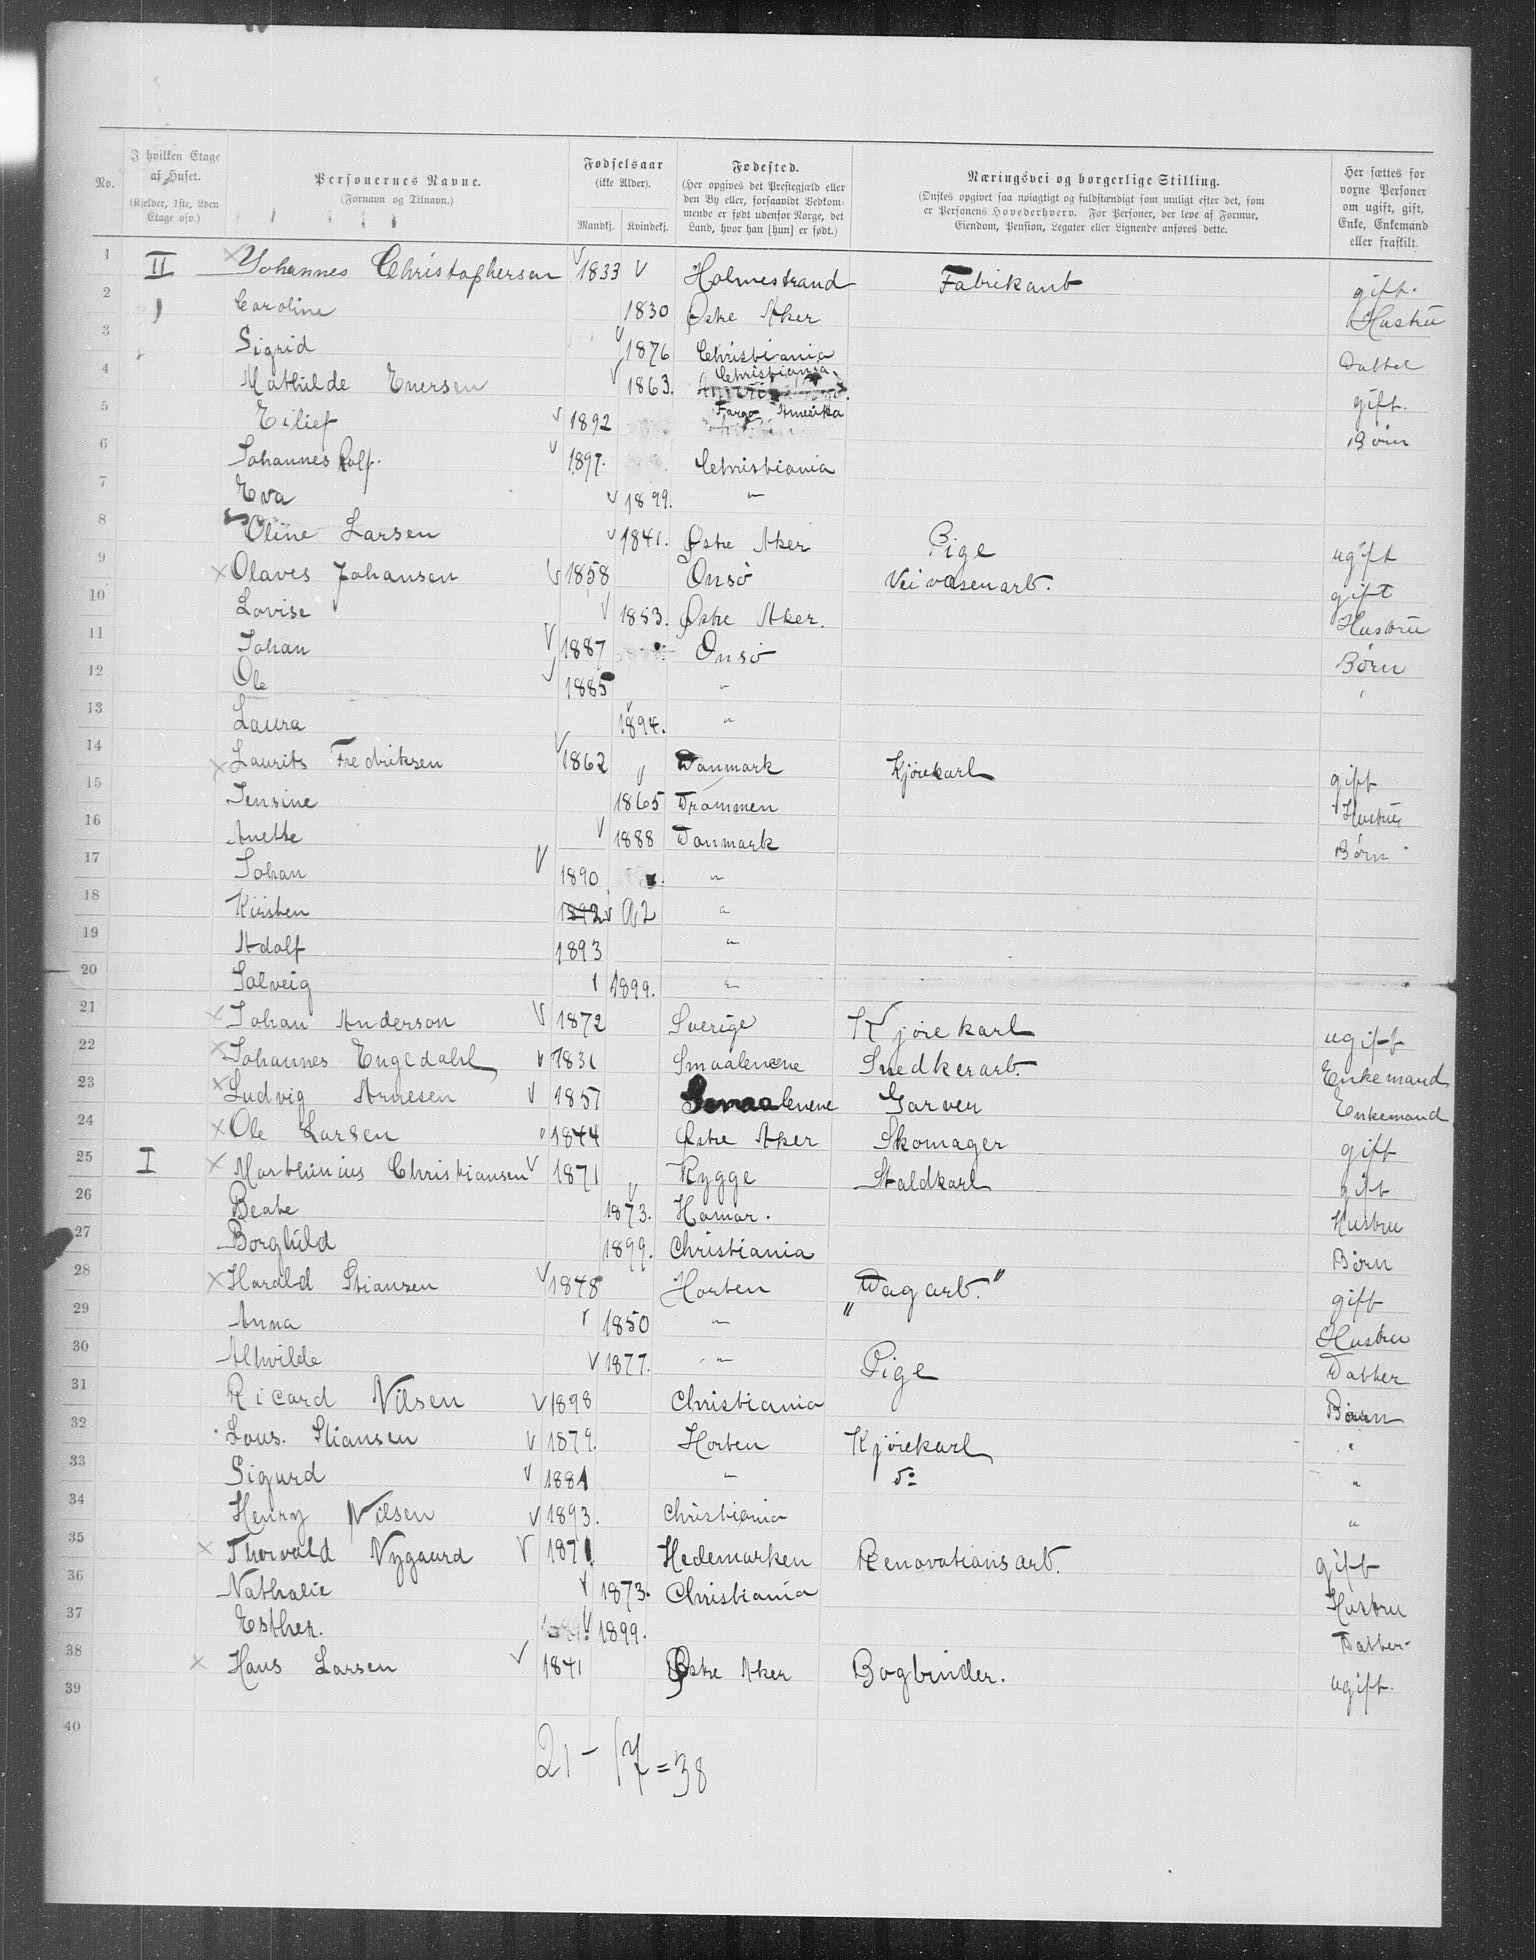 No.
I hvilken Etage af Huset. (Kjelder, 1ste, 2den Etage osv.)
Personernes Navne. (Fornavn og Tilnavn.)
Fødselsaar (ikke Alder). Mandkj. Kvindekj.
Fødested. (Her opgives det Prestegjæld eller den By eller, forsaavidt Vedkommende er født udenfor Norge, det Land, hvor han [hun] er født.)
Næringsvei og borgerlige Stilling. (Ønskes opgivet saa nøiagtigt og fuldstændigt som muligt efter det, som er Personens Hovederhverv. For Personer, der leve af Formue, Eiendom, Pension, Legater eller Lignende anføres dette.
Her sættes for voxne Personer om ugift, gift, Enke, Enkemand eller fraskilt.
1 II Johannes Christophersen 1833 Holmestrand Fabrikant gift.
2 Caroline 1830 Østre Aker Hustru
3 Sigrid 1876 Christiania Datter
4 Mathilde Eversen 1863. Christiania. gift.
5 Eilief 1892 Fargo Amerika Børn
6 Johannes Rolf. 1897. Christiania
7 Eva 1899. "
8 Oline Larsen 1841. Østre Aker Pige ugift
9 Olaves Johansen 1858 Onsö Veivæsenarb. gift
10 Lovise 1853. Østre Aker. Hustru
11 Johan 1887 Onsö Børn
12 Ole 1885 " "
13 Laura 1894. "
14 Laurits Fredriksen 1862 Danmark Kjørekarl gift
15 Jensine 1865 Drammen Hustru
16 Anette 1888 Danmark Børn
17 Johan 1890 "
18 Kirsten 1892 92 "
19 Adolf 1893 "
20 Solveig 1899. "
21 Johan Anderson 1872 Sverige Kjørekarl ugift
22 Johannes Engedahl 1831 Smaalenene Snedkerarb. Enkemand
23 Ludvig Arnesen 1857 Smaalenene Garver Enkemand
24 Ole Larsen 1844 Østre Aker Skomager gift
25 I Marthinius Christiansen 1871 Rygge Staldkarl gift
26 Beate 1873. Hamar. Hustru
27 Borghild 1899. Christiania Børn
28 Harald Stiansen 1848 Horten "Dagarb." gift
29 Anna 1850 " Hustru
30 Alhvilde 1877. " Pige Datter
31 Ricard Nilsen 1898 Christiania Børn
32 Laus. Stiansen 1879. Horten Kjørekarl "
33 Sigurd 1881 " do "
34 Henry Nilsen 1893. Christiania "
35 Thorvald Nygaard 1871 Hedemarken Renovationsarb. gift
36 Nathalie 1873. Christiania Hustru
37 Esther. 1899. Datter
38 Hans Larsen 1841 Østre Aker Bogbinder. ugift.
39
40
21 - 17 = 38